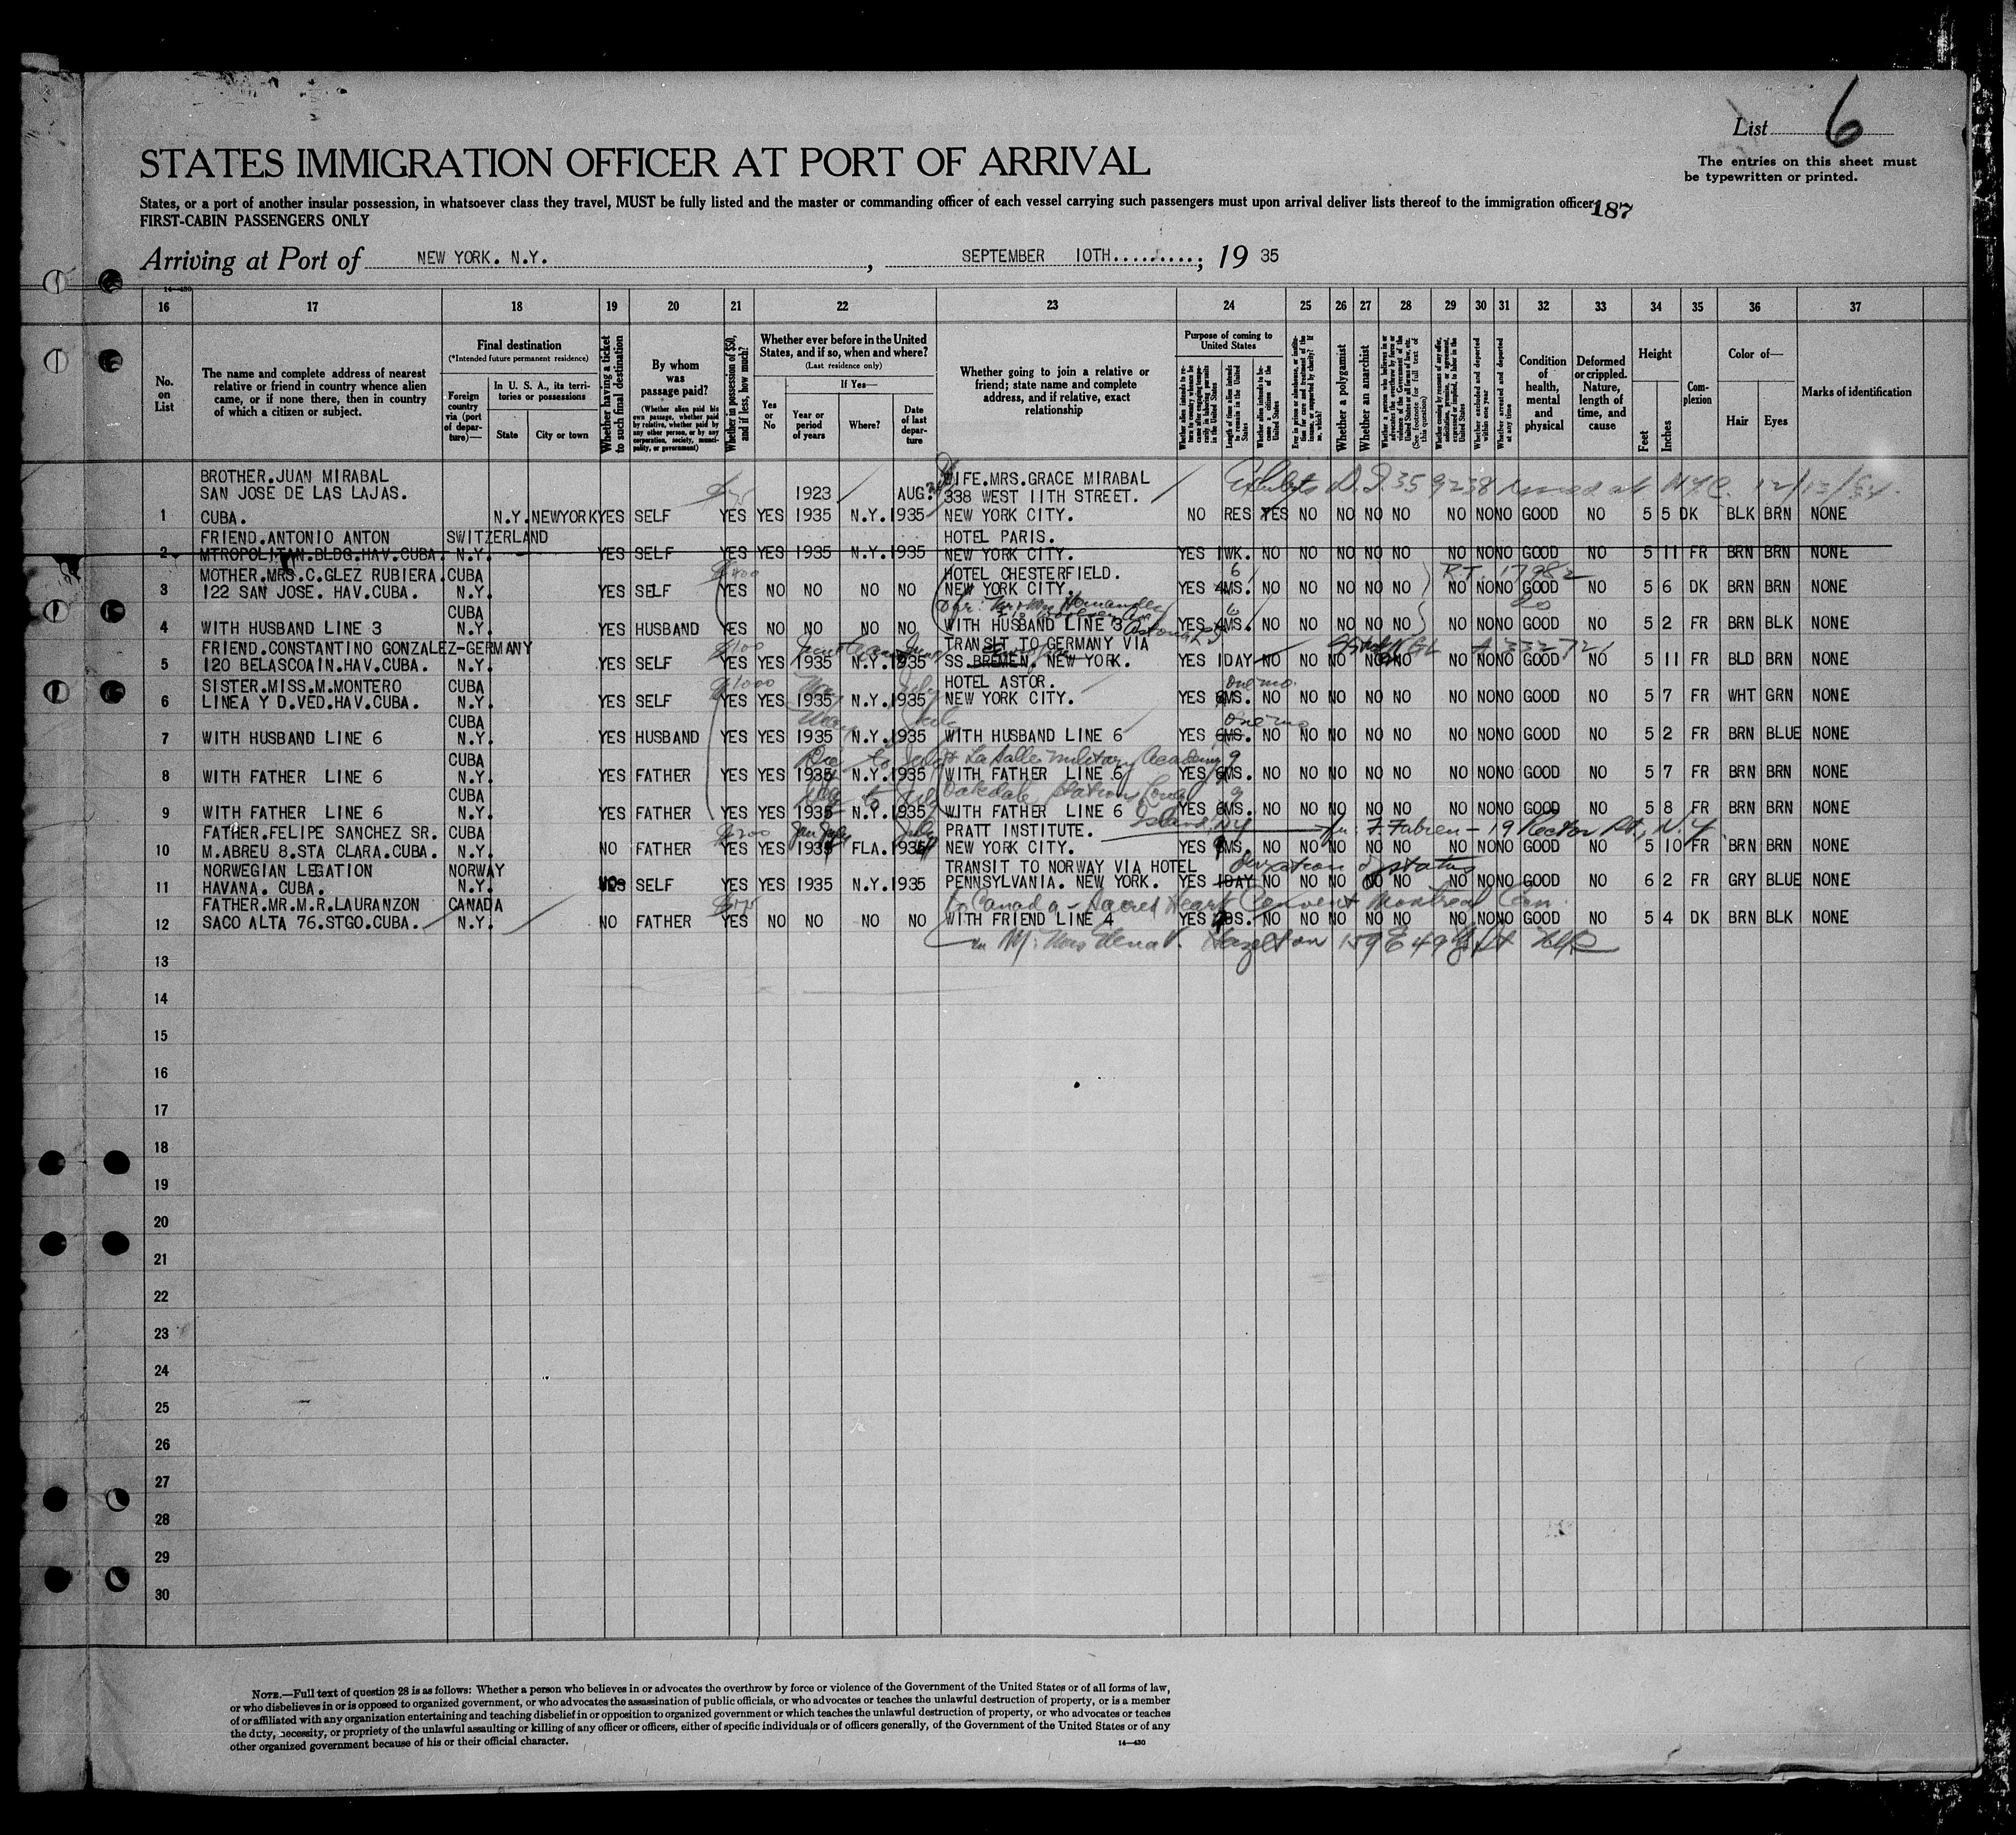 List 6
The entries on this sheet must
be typewritten or printed.
STATES IMMIGRATION OFFICER AT PORT OF ARRIVAL
States, or a port of another insular possession, in whatsoever class they travel, MUST be fully listed and the master or commanding officer of each vessel carrying such passengers must upon arrival deliver lists thereof to the immigration officer
187
FIRST-CABIN PASSENGERS ONLY
Arriving at Port of NEW YORK. N.Y. , SEPTEMBER 10TH..........; 19 35
14—430
16 17 18 19 20 21 22 23 24 25 26 27 28 29 30 31 32 33 34 35 36 37
No. on List
The name and complete address of nearest relative or friend in country whence alien came, or if none there, then in country of which a citizen or subject.
Final destination
(*Intended future permanent residence)
Foreign country via (port of departure)—
In U. S. A., its territories or possessions
State
City or town
Whether having a ticket to such final destination
By whom was passage paid?
(Whether alien paid his own passage, whether paid by relative, whether paid by any other person, or by any corporation, society, municipality, or government)
Whether in possession of $50, and if less, how much?
Whether ever before in the United States, and if so, when and where?
(Last residence only)
Yes or No
If Yes—
Year or period of years
Where?
Date of last departure
Whether going to join a relative or friend; state name and complete address, and if relative, exact relationship
Purpose of coming to United States
Length of time alien intends to remain in the United States
Whether alien intends to become a citizen of the United States
Whether a polygamist
Whether an anarchist
Whether excluded and deported within one year
Whether arrested and deported at any time
Condition of health, mental and physical
Deformed or crippled. Nature, length of time, and cause
Height
Feet
Inches
Complexion
Color of—
Hair
Eyes
Marks of identification
BROTHER.JUAN MIRABAL WIFE.MRS.GRACE MIRABAL
SAN JOSE DE LAS LAJAS. 1923 AUG. 338 WEST 11TH STREET.
1 CUBA. N.Y. NEWYORK YES SELF YES YES 1935 N.Y. 1935 NEW YORK CITY. NO RES YES NO NO NO NO NO NO NO GOOD NO 5 5 DK BLK BRN NONE
FRIEND.ANTONIO ANTON SWITZERLAND HOTEL PARIS.
2 MTROPOLITAN.BLDG.HAV.CUBA. N.Y. YES SELF YES YES 1935 N.Y. 1935 NEW YORK CITY. YES 1WK. NO NO NO NO NO NO NO NO GOOD NO 5 11 FR BRN BRN NONE
MOTHER.MRS.C.GLEZ RUBIERA. CUBA HOTEL CHESTERFIELD. 6 R.T. 17982
3 122 SAN JOSE. HAV.CUBA. N.Y. YES SELF YES NO NO NO NO NEW YORK CITY. YES 4MS. NO NO NO NO NO NO NO NO GOOD NO 5 6 DK BRN BRN NONE
CUBA 6 do
4 WITH HUSBAND LINE 3 N.Y. YES HUSBAND YES NO NO NO NO WITH HUSBAND LINE 3 YES 4MS. NO NO NO NO NO NO NO NO GOOD NO 5 2 FR BRN BLK NONE
FRIEND.CONSTANTINO GONZALEZ-GERMANY $100 TRANSIT TO GERMANY VIA
5 120 BELASCOAIN.HAV.CUBA. N.Y. YES SELF YES YES 1935 N.Y. 1935 SS.BREMEN. NEW YORK. YES 1DAY NO NO NO NO NO NO NO NO GOOD NO 5 11 FR BLD BRN NONE
SISTER.MISS.M.MONTERO CUBA $1000 HOTEL ASTOR. one mo.
6 LINEA Y D.VED.HAV.CUBA. N.Y. YES SELF YES YES 1935 N.Y. 1935 NEW YORK CITY. YES 6MS. NO NO NO NO NO NO NO NO GOOD NO 5 7 FR WHT GRN NONE
CUBA one mo
7 WITH HUSBAND LINE 6 N.Y. YES HUSBAND YES YES 1935 N.Y. 1935 WITH HUSBAND LINE 6 YES 6MS. NO NO NO NO NO NO NO NO GOOD NO 5 2 FR BRN BLUE NONE
CUBA La Salle Military Academy 9
8 WITH FATHER LINE 6 N.Y. YES FATHER YES YES 1935 N.Y. 1935 WITH FATHER LINE 6 YES 6MS. NO NO NO NO NO NO NO NO GOOD NO 5 7 FR BRN BRN NONE
CUBA Oakdale Station Long 9
9 WITH FATHER LINE 6 N.Y. YES FATHER YES YES 1935 N.Y. 1935 WITH FATHER LINE 6 YES 6MS. NO NO NO NO NO NO NO NO GOOD NO 5 8 FR BRN BRN NONE
Island, NY
FATHER.FELIPE SANCHEZ SR. CUBA $200 PRATT INSTITUTE. F. Fabien - 19 Rector St, N.Y.
10 M.ABREU 8.STA CLARA.CUBA. N.Y. NO FATHER YES YES 1935 FLA. 1935 NEW YORK CITY. YES MS. NO NO NO NO NO NO NO NO GOOD NO 5 10 FR BRN BRN NONE
NORWEGIAN LEGATION NORWAY TRANSIT TO NORWAY VIA HOTEL duration of status
11 HAVANA. CUBA. N.Y. SELF YES YES 1935 N.Y. 1935 PENNSYLVANIA. NEW YORK. YES 1DAY NO NO NO NO NO NO NO NO GOOD NO 6 2 FR GRY BLUE NONE
FATHER.MR.M.R.LAURANZON CANADA to Canada - Sacred Heart Convent Montreal Can.
12 SACO ALTA 76.STGO.CUBA. N.Y. NO FATHER YES NO NO NO NO WITH FRIEND LINE 4 YES NO NO NO NO NO NO NO NO GOOD NO 5 4 DK BRN BLK NONE
in NY: Mrs Elena V. Hazelton 159 E 49th St NYC
13
14
15
16
17
18
19
20
21
22
23
24
25
26
27
28
29
30
NOTE.—Full text of question 28 is as follows: Whether a person who believes in or advocates the overthrow by force or violence of the Government of the United States or of all forms of law,
or who disbelieves in or is opposed to organized government, or who advocates the assassination of public officials, or who advocates or teaches the unlawful destruction of property, or is a member
of or affiliated with any organization entertaining and teaching disbelief in or opposition to organized government or which teaches the unlawful destruction of property, or who advocates or teaches
the duty, necessity, or propriety of the unlawful assaulting or killing of any officer or officers, either of specific individuals or of officers generally, of the Government of the United States or of any
other organized government because of his or their official character.
14—430